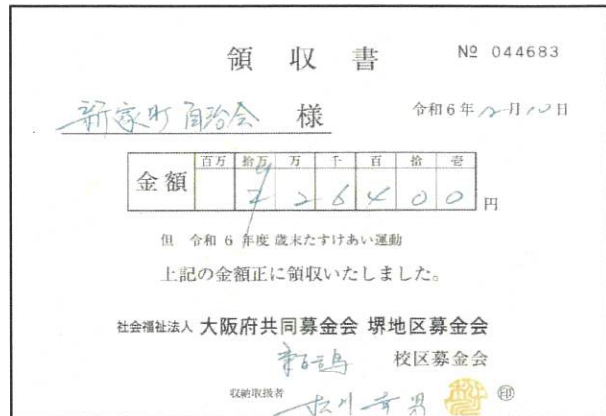 領収書 № 044683
新家町自治会 様 令和6年12月10日
百万 拾万 万 千 百 拾 壱
金額 ¥ 2 6 4 0 0 円
但 令和 6 年度 歳末たすけあい運動
上記の金額正に領収いたしました。
社会福祉法人 大阪府共同募金会 堺地区募金会
校区募金会
収納取扱者 印